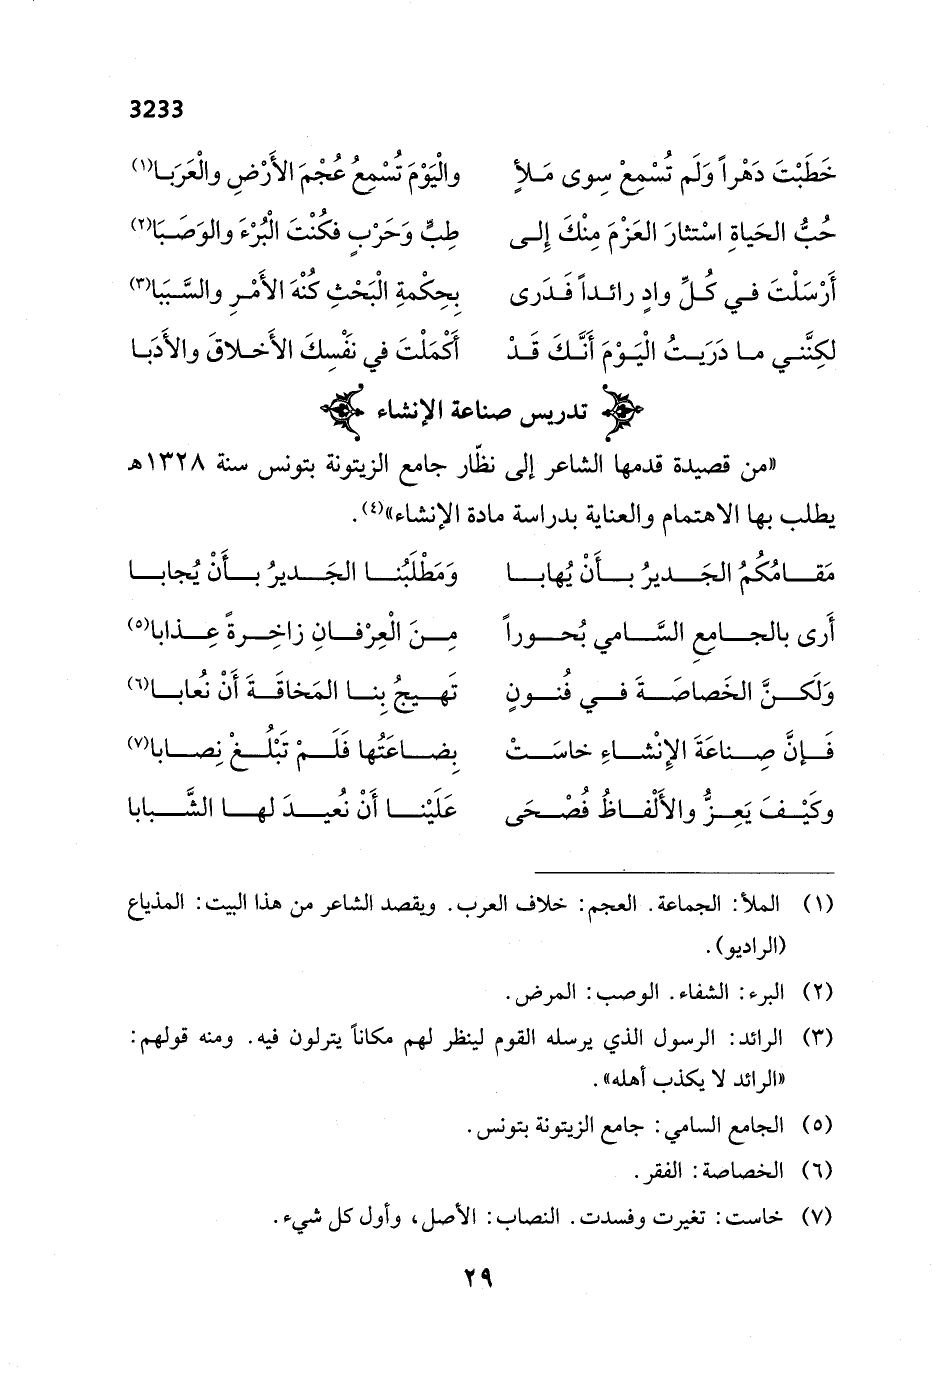 3233
خَطَبْتَ دَهْراً وَلَم تُسْمِعْ سِوى مَلأٍ والْيَوْمَ تُسْمِعُ عُجْمَ الأَرْضِ والْعَرَبَا(١)
حُبُّ الحَياةِ اسْتثارَ العَزْمَ مِنْكَ إِلى طِبٍّ وَحَرْبٍ فكُنْتَ الْبُرْءَ والوَصَبَا(٢)
أَرْسَلْتَ في كُلِّ وادٍ رائداً فَدَرى بِحِكْمةِ الْبَحْثِ كُنْهَ الأَمْرِ والسَّبَبَا(٣)
لكِنَّني ما دَرَيتُ الْيَوْمَ أَنَّكَ قَدْ أَكْمَلْتَ في نَفْسِكَ الأَخلاقَ والأَدَبَا
تدريس صناعة الإنشاء
«من قصيدة قدمها الشاعر إلى نظّار جامع الزيتونة بتونس سنة ١٣٢٨هـ
يطلب بها الاهتمام والعناية بدراسة مادة الإنشاء»(٤).
مَقامُكُمُ الجَديرُ بأَنْ يُهابا وَمَطْلَبُنا الجَديرُ بأَنْ يُجابا
أَرى بالجامِعِ السَّامي بُحوراً مِنَ الْعِرْفانِ زاخِرةً عِذابا(٥)
وَلَكنَّ الخَصاصَةَ في فُنونٍ تَهيجُ بِنا المَخاقَةَ أَنْ نُعابا(٦)
فَإِنَّ صِناعَةَ الإِنْشاءِ خاسَتْ بِضاعَتُها فَلَمْ تَبْلُغْ نِصابا(٧)
وكَيْفَ يَعِزُّ والأَلْفاظُ فُصْحَى عَلَيْنا أَنْ نُعيدَ لها الشَّبابا
(١) الملأ: الجماعة. العجم: خلاف العرب. ويقصد الشاعر من هذا البيت: المذياع
(الراديو).
(٢) البرء: الشفاء. الوصب: المرض.
(٣) الرائد: الرسول الذي يرسله القوم لينظر لهم مكاناً يترلون فيه. ومنه قولهم:
«الرائد لا يكذب أهله».
(٥) الجامع السامي: جامع الزيتونة بتونس.
(٦) الخصاصة: الفقر.
(٧) خاست: تغيرت وفسدت. النصاب: الأصل، وأول كل شيء.
٢٩